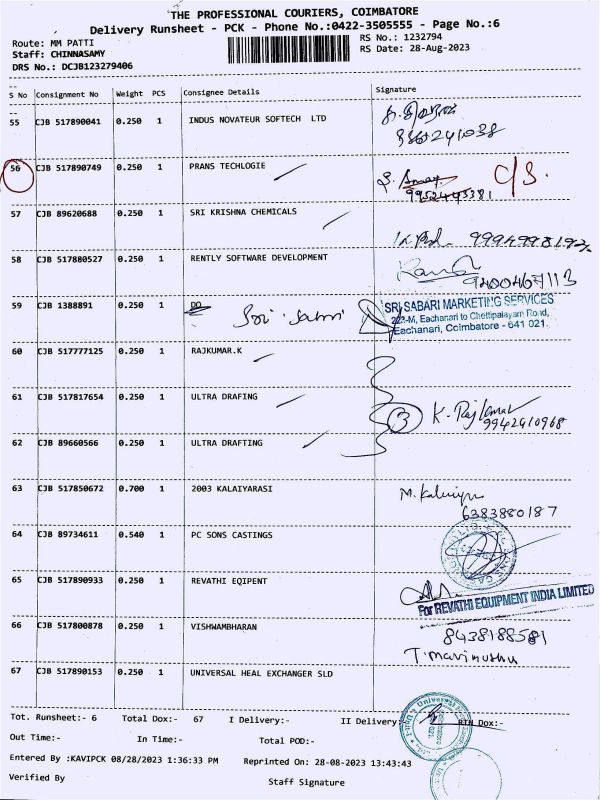 THE PROFESSIONAL COURIERS, COIMBATORE
Delivery Runsheet - PCK - Phone No.:0422-3505555 - Page No.:6
Route: MM PATTI
RS No.: 1232794
Staff: CHINNASAMY
RS Date: 28-Aug-2023
DRS No.: DCJB123279406
S No Consignment No Weight PCS Consignee Details Signature
55 CJB 517890041 0.250 1 INDUS NOVATEUR SOFTECH LTD
56 CJB 517890749 0.250 1 PRANS TECHLOGIE C/S.
9952493381
57 CJB 89620688 0.250 1 SRI KRISHNA CHEMICALS
58 CJB 517880527 0.250 1 RENTLY SOFTWARE DEVELOPMENT
9400467113
59 CJB 1388891 0.250 1 DO Sri
SRI SABARI MARKETING SERVICES
223-M, Eachanari to Chettipalayam Road,
Eachanari, Coimbatore - 641 021.
60 CJB 517777125 0.250 1 RAJKUMAR.K
61 CJB 517817654 0.250 1 ULTRA DRAFING
3 K. Rajkumar
9942910968
62 CJB 89660566 0.250 1 ULTRA DRAFTING
63 CJB 517850672 0.700 1 2003 KALAIYARASI
6383880187
64 CJB 89734611 0.540 1 PC SONS CASTINGS
65 CJB 517890933 0.250 1 REVATHI EQIPENT
For REVATHI EQUIPMENT INDIA LIMITED
66 CJB 517800878 0.250 1 VISHWAMBHARAN
8438188581
67 CJB 517890153 0.250 1 UNIVERSAL HEAL EXCHANGER SLD
Tot. Runsheet:- 6 Total Dox:- 67 I Delivery:- II Delivery:- RTN Dox:-
Out Time:- In Time:- Total POD:-
Entered By :KAVIPCK 08/28/2023 1:36:33 PM Reprinted On: 28-08-2023 13:43:43
Verified By Staff Signature